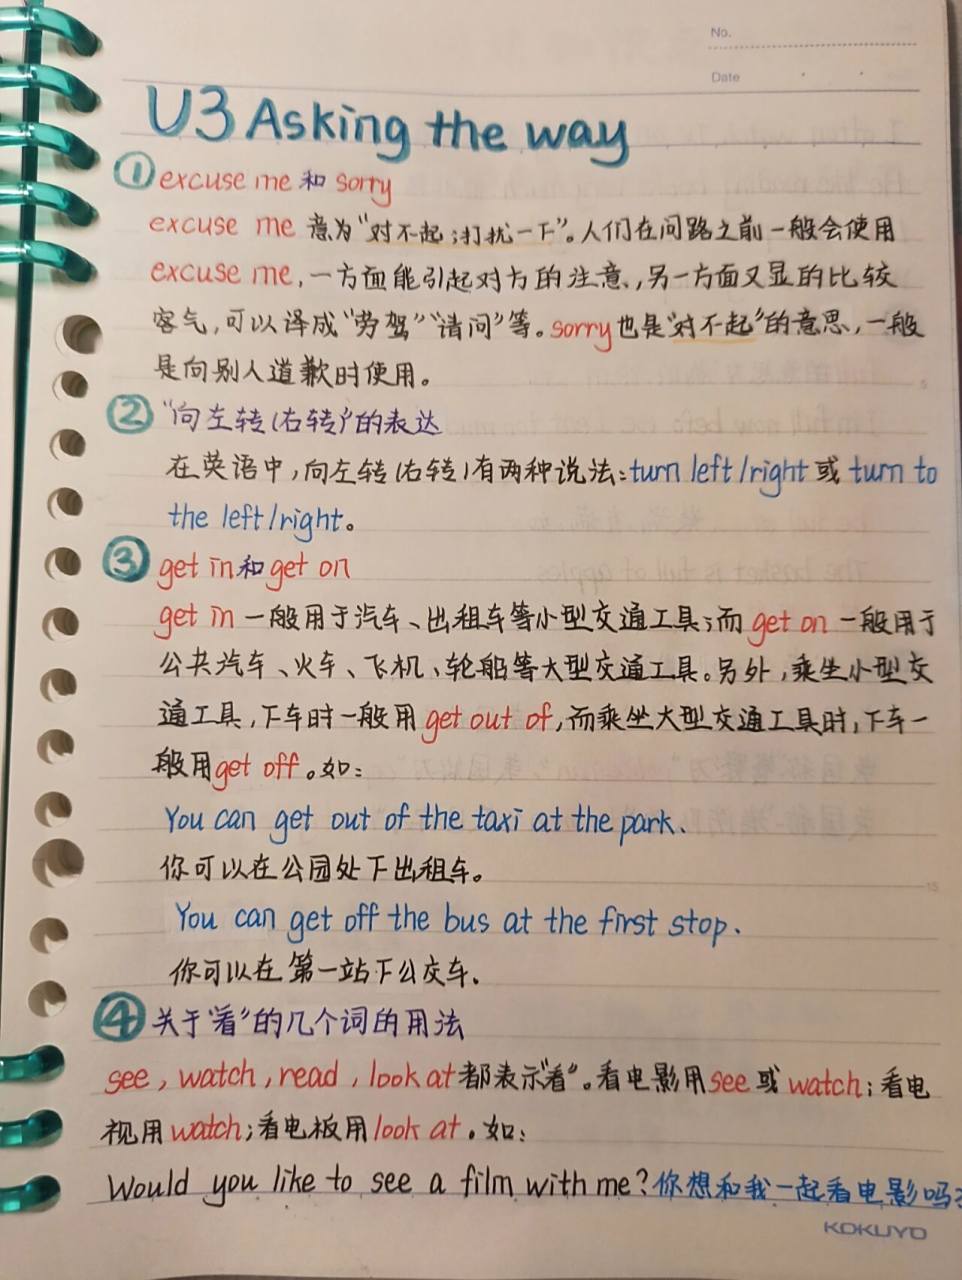 No.
Date
U3 Asking the way
① excuse me 和 sorry
excuse me 意为"对不起;打扰一下"。人们在问路之前一般会使用
excuse me,一方面能引起对方的注意,另一方面又显的比较
客气,可以译成"劳驾""请问"等。sorry也是"对不起"的意思,一般
是向别人道歉时使用。
② "向左转(右转)"的表达
在英语中,向左转(右转)有两种说法:turn left/right 或 turn to
the left/right。
③ get in和get on
get in 一般用于汽车、出租车等小型交通工具;而get on 一般用于
公共汽车、火车、飞机、轮船等大型交通工具。另外,乘坐小型交
通工具,下车时一般用get out of,而乘坐大型交通工具时,下车一
般用get off。如:
You can get out of the taxi at the park.
你可以在公园处下出租车。
You can get off the bus at the first stop.
你可以在第一站下公交车.
④ 关于"看"的几个词的用法
see, watch, read, look at都表示"看"。看电影用see或watch;看电
视用watch;看电板用look at。如:
Would you like to see a film with me?你想和我一起看电影吗?
KOKUYO